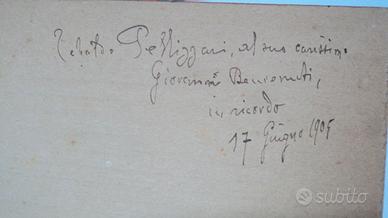 Pellizzari, al suo carissimo
Giovanni Benvenuti,
in ricordo
17 Giugno 1905
subito